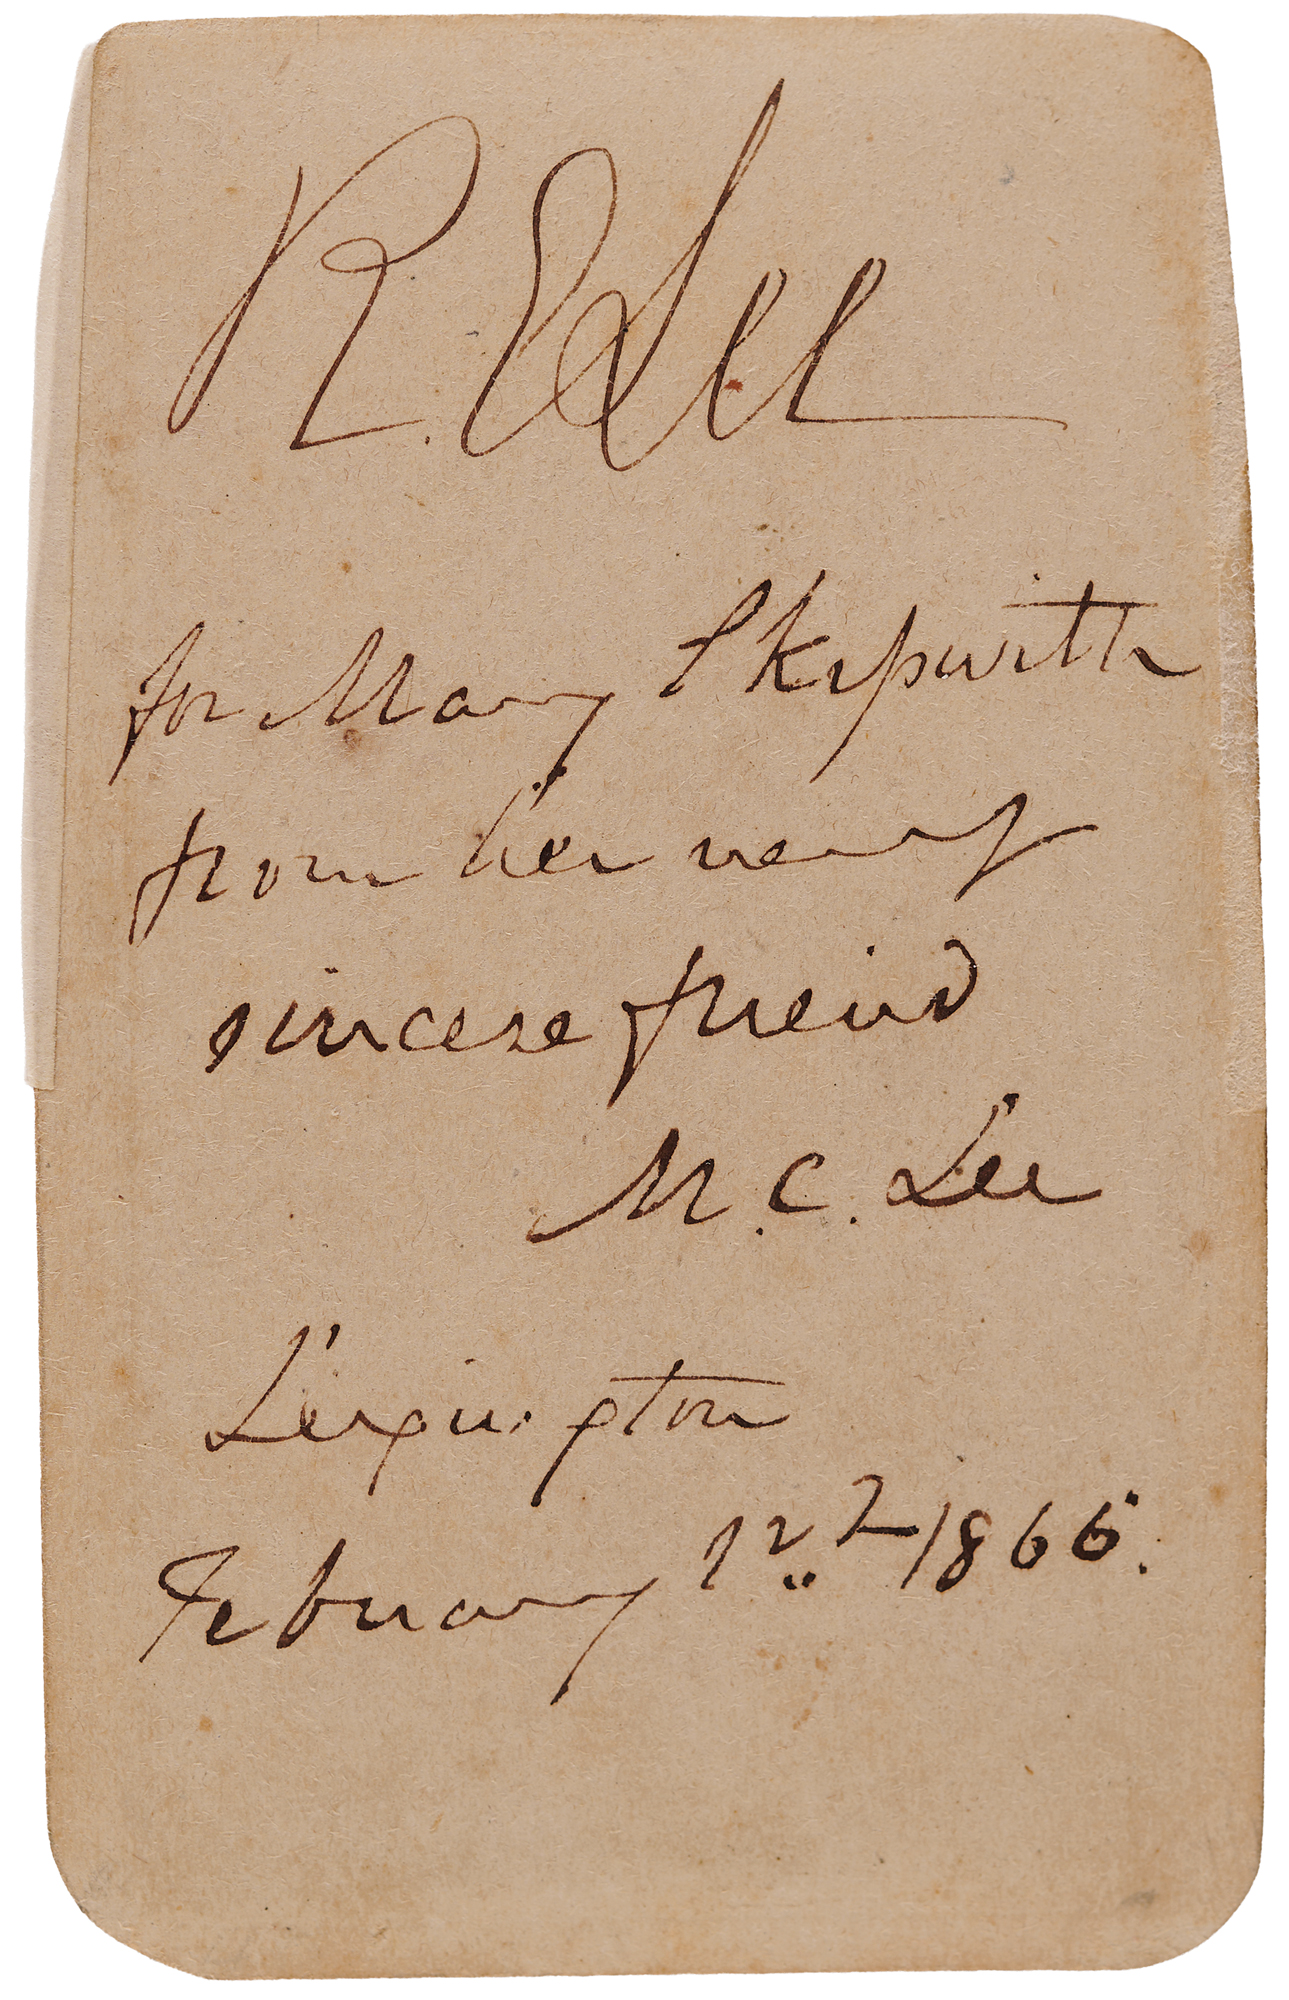 R. E Lee
for Mary Skipwith
from her very
sincere friend
M. C. Lee
Lexington
February 12 1866.